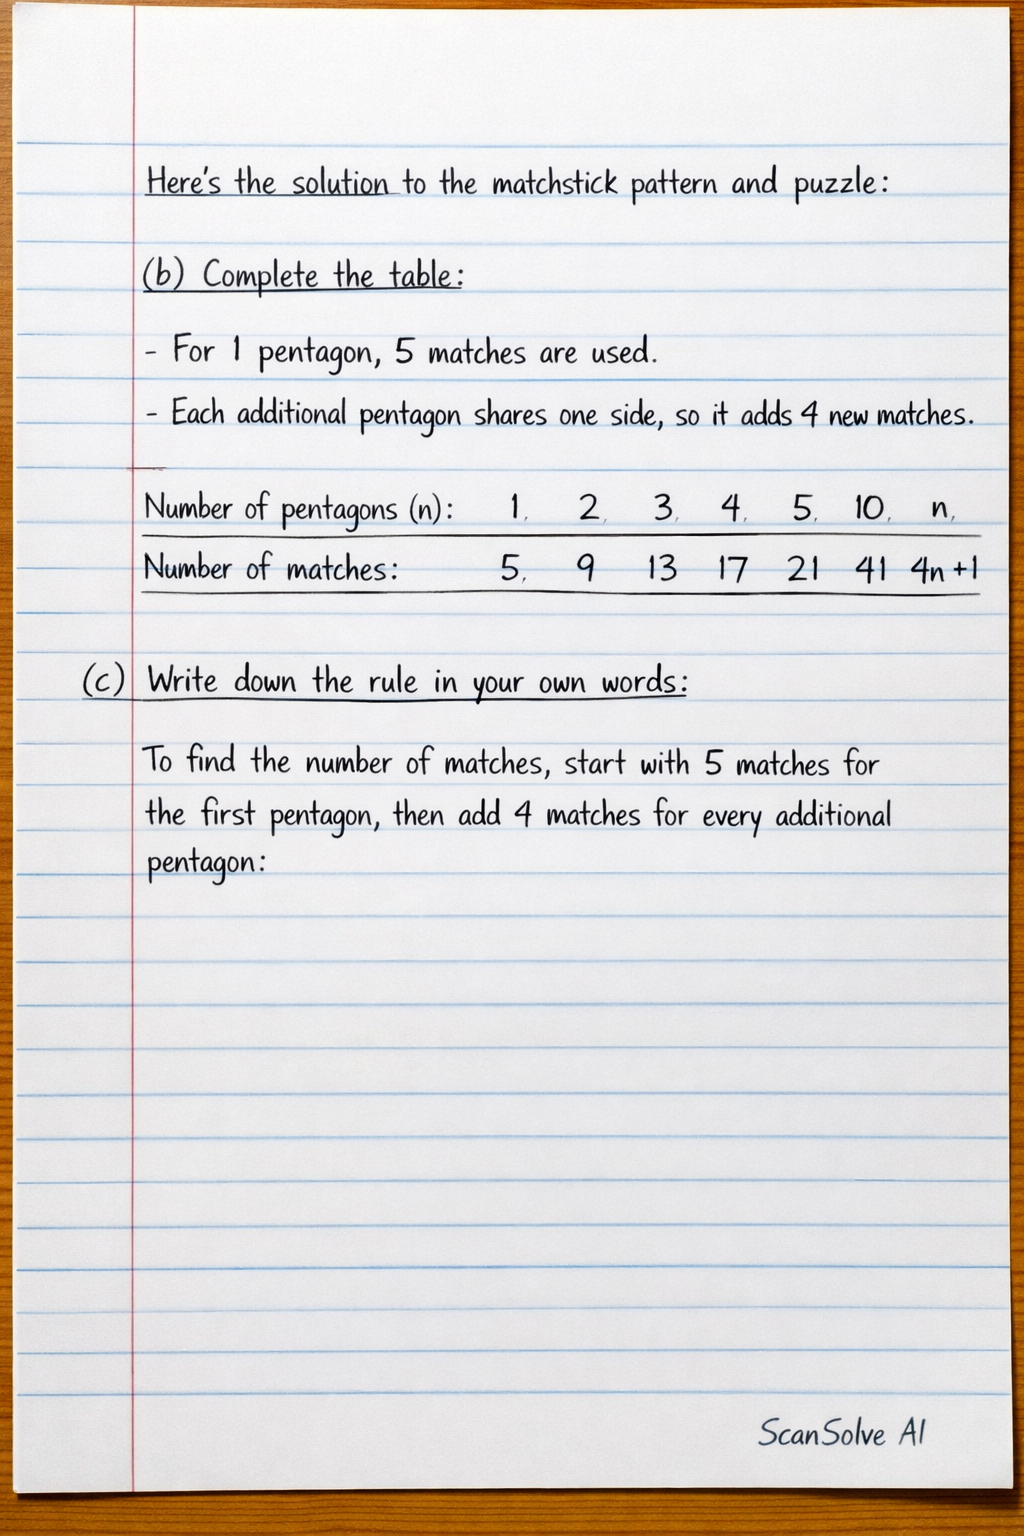 Here's the solution to the matchstick pattern and puzzle:
(b) Complete the table:
- For 1 pentagon, 5 matches are used.
- Each additional pentagon shares one side, so it adds 4 new matches.
Number of pentagons (n): 1, 2, 3, 4, 5, 10, n,
Number of matches: 5, 9 13 17 21 41 4n +1
(c) Write down the rule in your own words:
To find the number of matches, start with 5 matches for
the first pentagon, then add 4 matches for every additional
pentagon:
ScanSolve AI